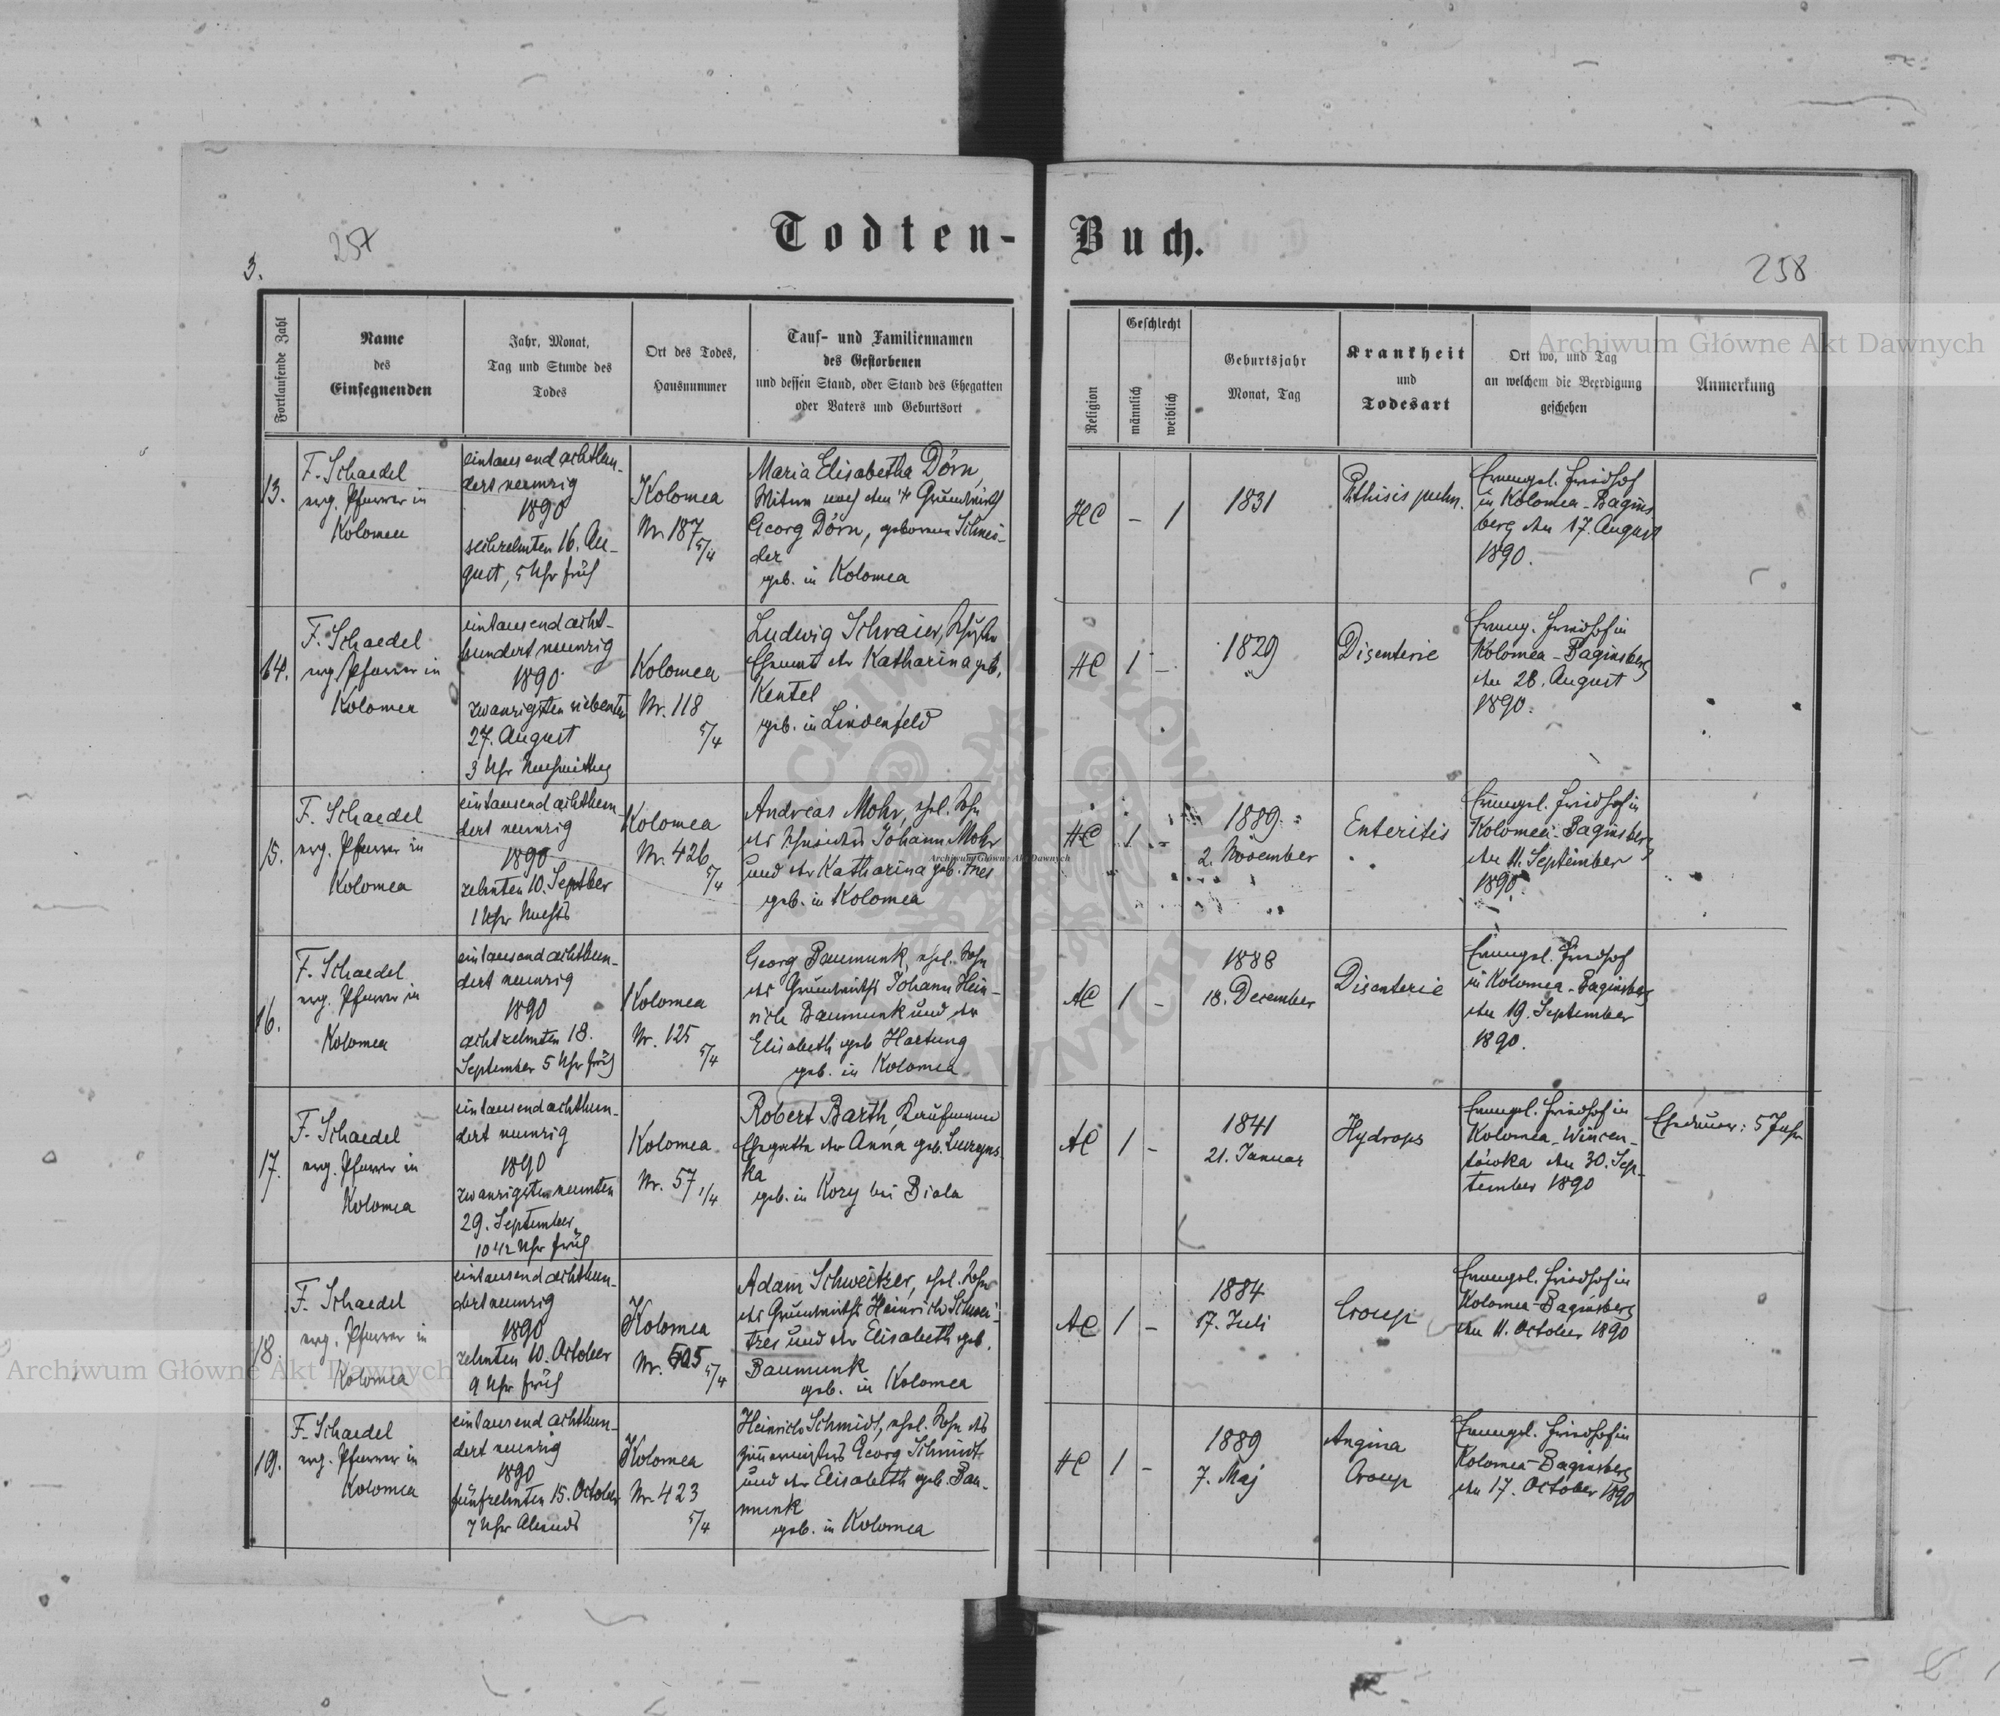 Todten-Buch.
257
258
3.
Fortlaufende Zahl
Name
des
Einsegnenden
Jahr, Monat,
Tag und Stunde des
Todes
Ort des Todes,
Hausnummer
Tauf- und Familiennamen
des Gestorbenen
und dessen Stand, oder Stand des Ehegatten
oder Vaters und Geburtsort
Religion
Geschlecht
männlich
weiblich
Geburtsjahr
Monat, Tag
Krankheit
und
Todesart
Ort wo, und Tag
an welchem die Beerdigung
geschehen
Anmerkung
13.
F. Schaedel
evg. Pfarrer in
Kolomea
eintausend achthun-
dert neunzig
1890
sechzehnten 16. Au-
gust, 5 Uhr früh
Kolomea
Nr. 187
5/4
Maria Elisabetha Dörn,
Witwe nach dem † Grundwirth
Georg Dörn, geborene Schnei-
der
geb. in Kolomea
HC
–
1
1831
Phthisis pulm.
Evangel. Friedhof
in Kolomea-Bagins
berg den 17. August
1890.
14.
F. Schaedel
evg. Pfarrer in
Kolomea
eintausend acht-
hundert neunzig
1890
zwanzigsten siebenten
27. August
3 Uhr Nachmittag
Kolomea
Nr. 118
5/4
Ludwig Schraier,
Ehemat der Katharina geb.
Kentel
geb. in Lindenfeld
HC
1
–
1829
Disenterie
Evang. Friedhof in
Kolomea-Baginsberg
den 28. August
1890.
15.
F. Schaedel
evg. Pfarrer in
Kolomea
eintausend achthun-
dert neunzig
1890
zehnten 10. Septber
1 Uhr Nachts
Kolomea
Nr. 426
5/4
Andreas Mohr, ehel. Sohn
des Schneiders Johann Mohr
und der Katharina geb.
geb. in Kolomea
HC
1
–
1889
2. November
Enteritis
Evangel. Friedhof in
Kolomea-Baginsberg
den 11. September
1890.
16.
F. Schaedel
evg. Pfarrer in
Kolomea
eintausend achthun-
dert neunzig
1890
achtzehnten 18.
September 5 Uhr früh
Kolomea
Nr. 125
5/4
Georg Baumunk, ehel. Sohn
des Grundwirths Johann Hein-
rich Baumunk und der
Elisabeth geb Hartung
geb. in Kolomea
AC
1
–
1888
18. December
Disenterie
Evangel. Friedhof
in Kolomea-Baginsberg
den 19. September
1890.
17.
F. Schaedel
evg. Pfarrer in
Kolomea
eintausend achthun-
dert neunzig
1890
zwanzigsten neunten
29. September
10 1/2 Uhr früh
Kolomea
Nr. 57 1/4
Robert Barth, Kaufmann
Ehegatte der Anna geb.
ka
geb. in Kozy bei Biala
AC
1
–
1841
21. Januar
Hydrops
Evangel. Friedhof in
Kolomea-Wincen-
tówka den 30. Sep-
tember 1890
Ehedauer: 5 Jahr
18.
F. Schaedel
evg. Pfarrer in
Kolomea
eintausend achthun-
dert neunzig
1890
zehnten 10. October
9 Uhr früh
Kolomea
Nr. 5/4
Adam Schweitzer, ehel. Sohn
des Grundwirths Heinrich Schwei-
tzer und der Elisabeth geb.
Baumunk
geb. in Kolomea
AC
1
–
1884
17. Juli
Croup
Evangel. Friedhof in
Kolomea-Baginsberg
den 11. October 1890
19.
F. Schaedel
evg. Pfarrer in
Kolomea
eintausend achthun-
dert neunzig
1890
fünfzehnten 15. October
7 Uhr Abends
Kolomea
Nr. 423
5/4
Heinrich Schmidt, ehel. Sohn des
Zim̄ermeisters Georg Schmidt
und der Elisabeth geb. Bau-
munk
geb. in Kolomea
HC
1
–
1889
7. Maj
Angina
Croup
Evangel. Friedhof in
Kolomea-Baginsberg
den 17. October 1890
Archiwum Główne Akt Dawnych
Archiwum Główne Akt Dawnych
Archiwum Główne Akt Dawnych